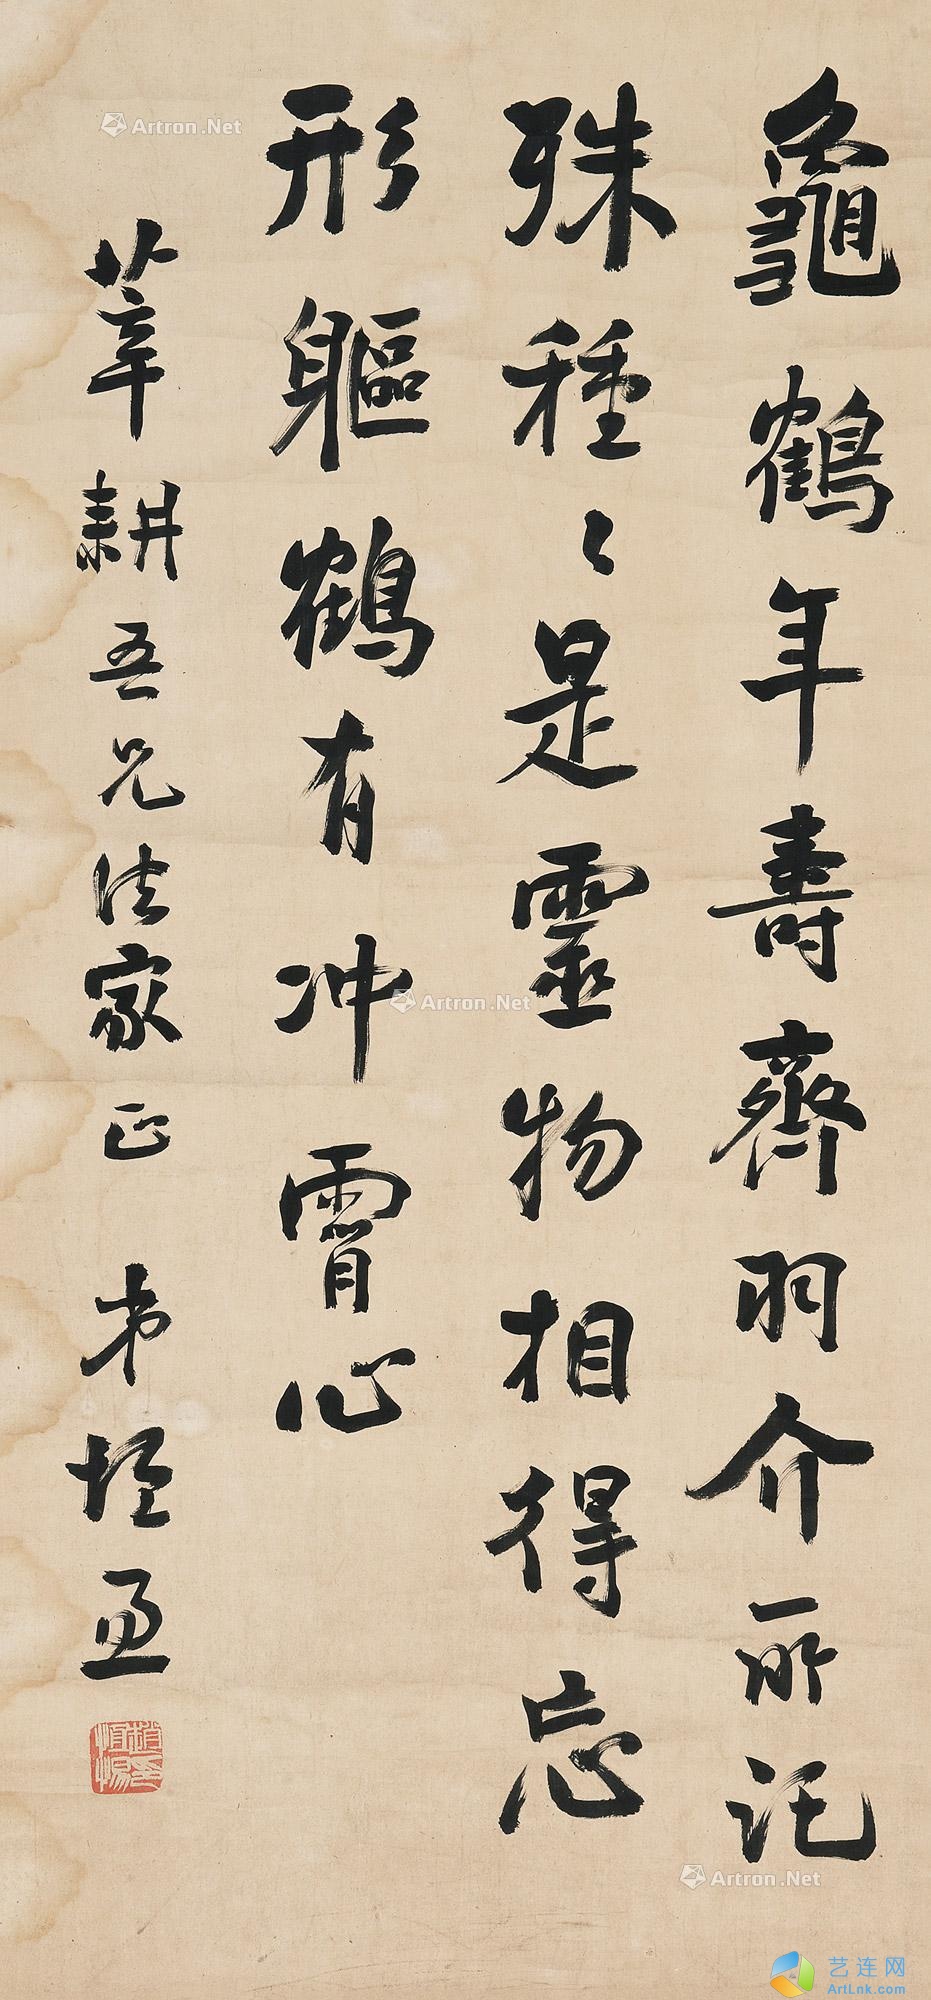 龜鶴年壽齊羽介所託
殊種〻是靈物相得忘
形軀鶴有冲霄心
莘耕吾兄法家正 弟恆惕
趙恆惕印
Artron.Net
Artron.Net
Artron.Net
艺连网
ArtLnk.com